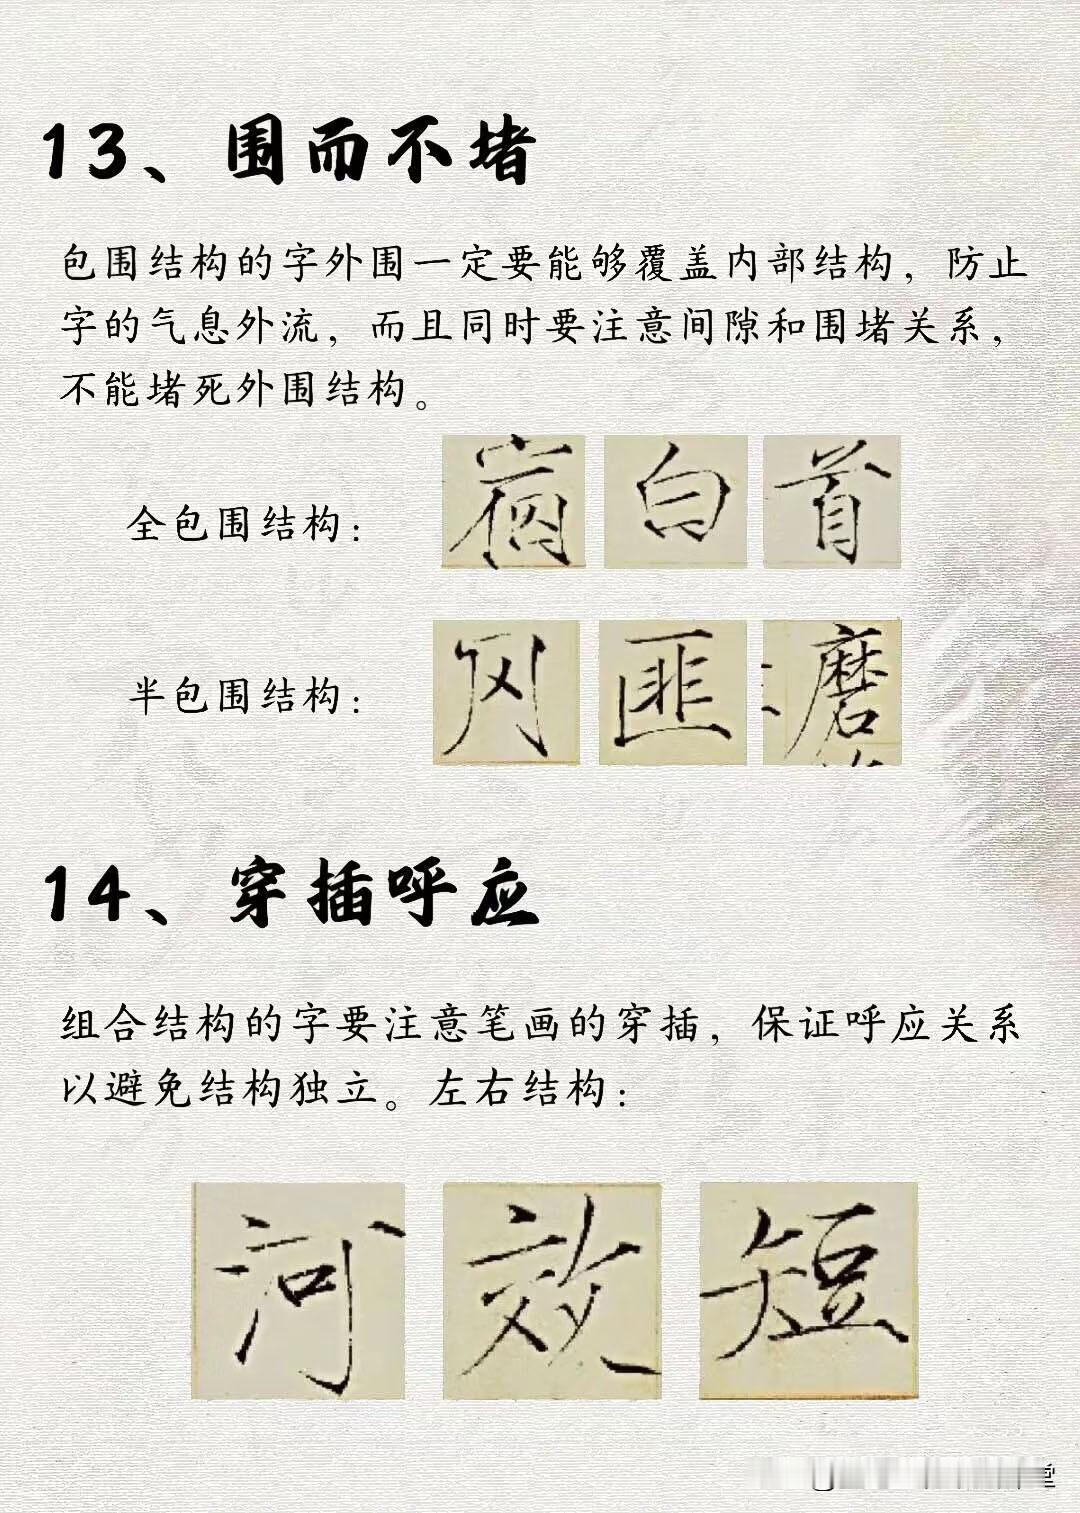 13、围而不堵
包围结构的字外围一定要能够覆盖内部结构，防止
字的气息外流，而且同时要注意间隙和围堵关系，
不能堵死外围结构。
全包围结构： 白首
半包围结构： 匪磨
14、穿插呼应
组合结构的字要注意笔画的穿插，保证呼应关系
以避免结构独立。左右结构：
河效短